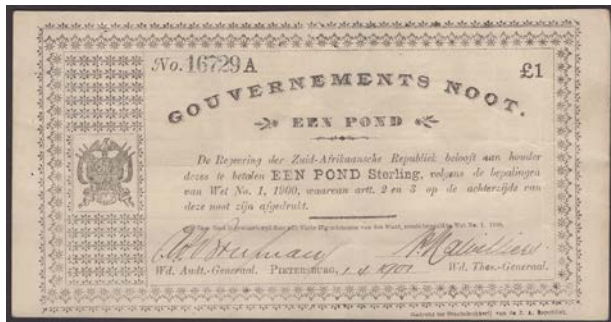 No. 16729 A
£1
GOUVERNEMENTS NOOT.
EEN POND
De Regeering der Zuid-Afrikaansche Republiek belooft aan houder
dezes te betalen EEN POND Sterling, volgens de bepalingen
van Wet No. 1, 1900, waarvan artt. 2 en 3 op de achterzijde van
deze noot zijn afgedrukt.
Wet No. 1, 1900.
Wd. Audt.-Generaal. PIETERSBURG, 1901 Wd. Thes.-Generaal.
Gedrukt ter Staatsdrukkerij van de Z. A. Republiek.